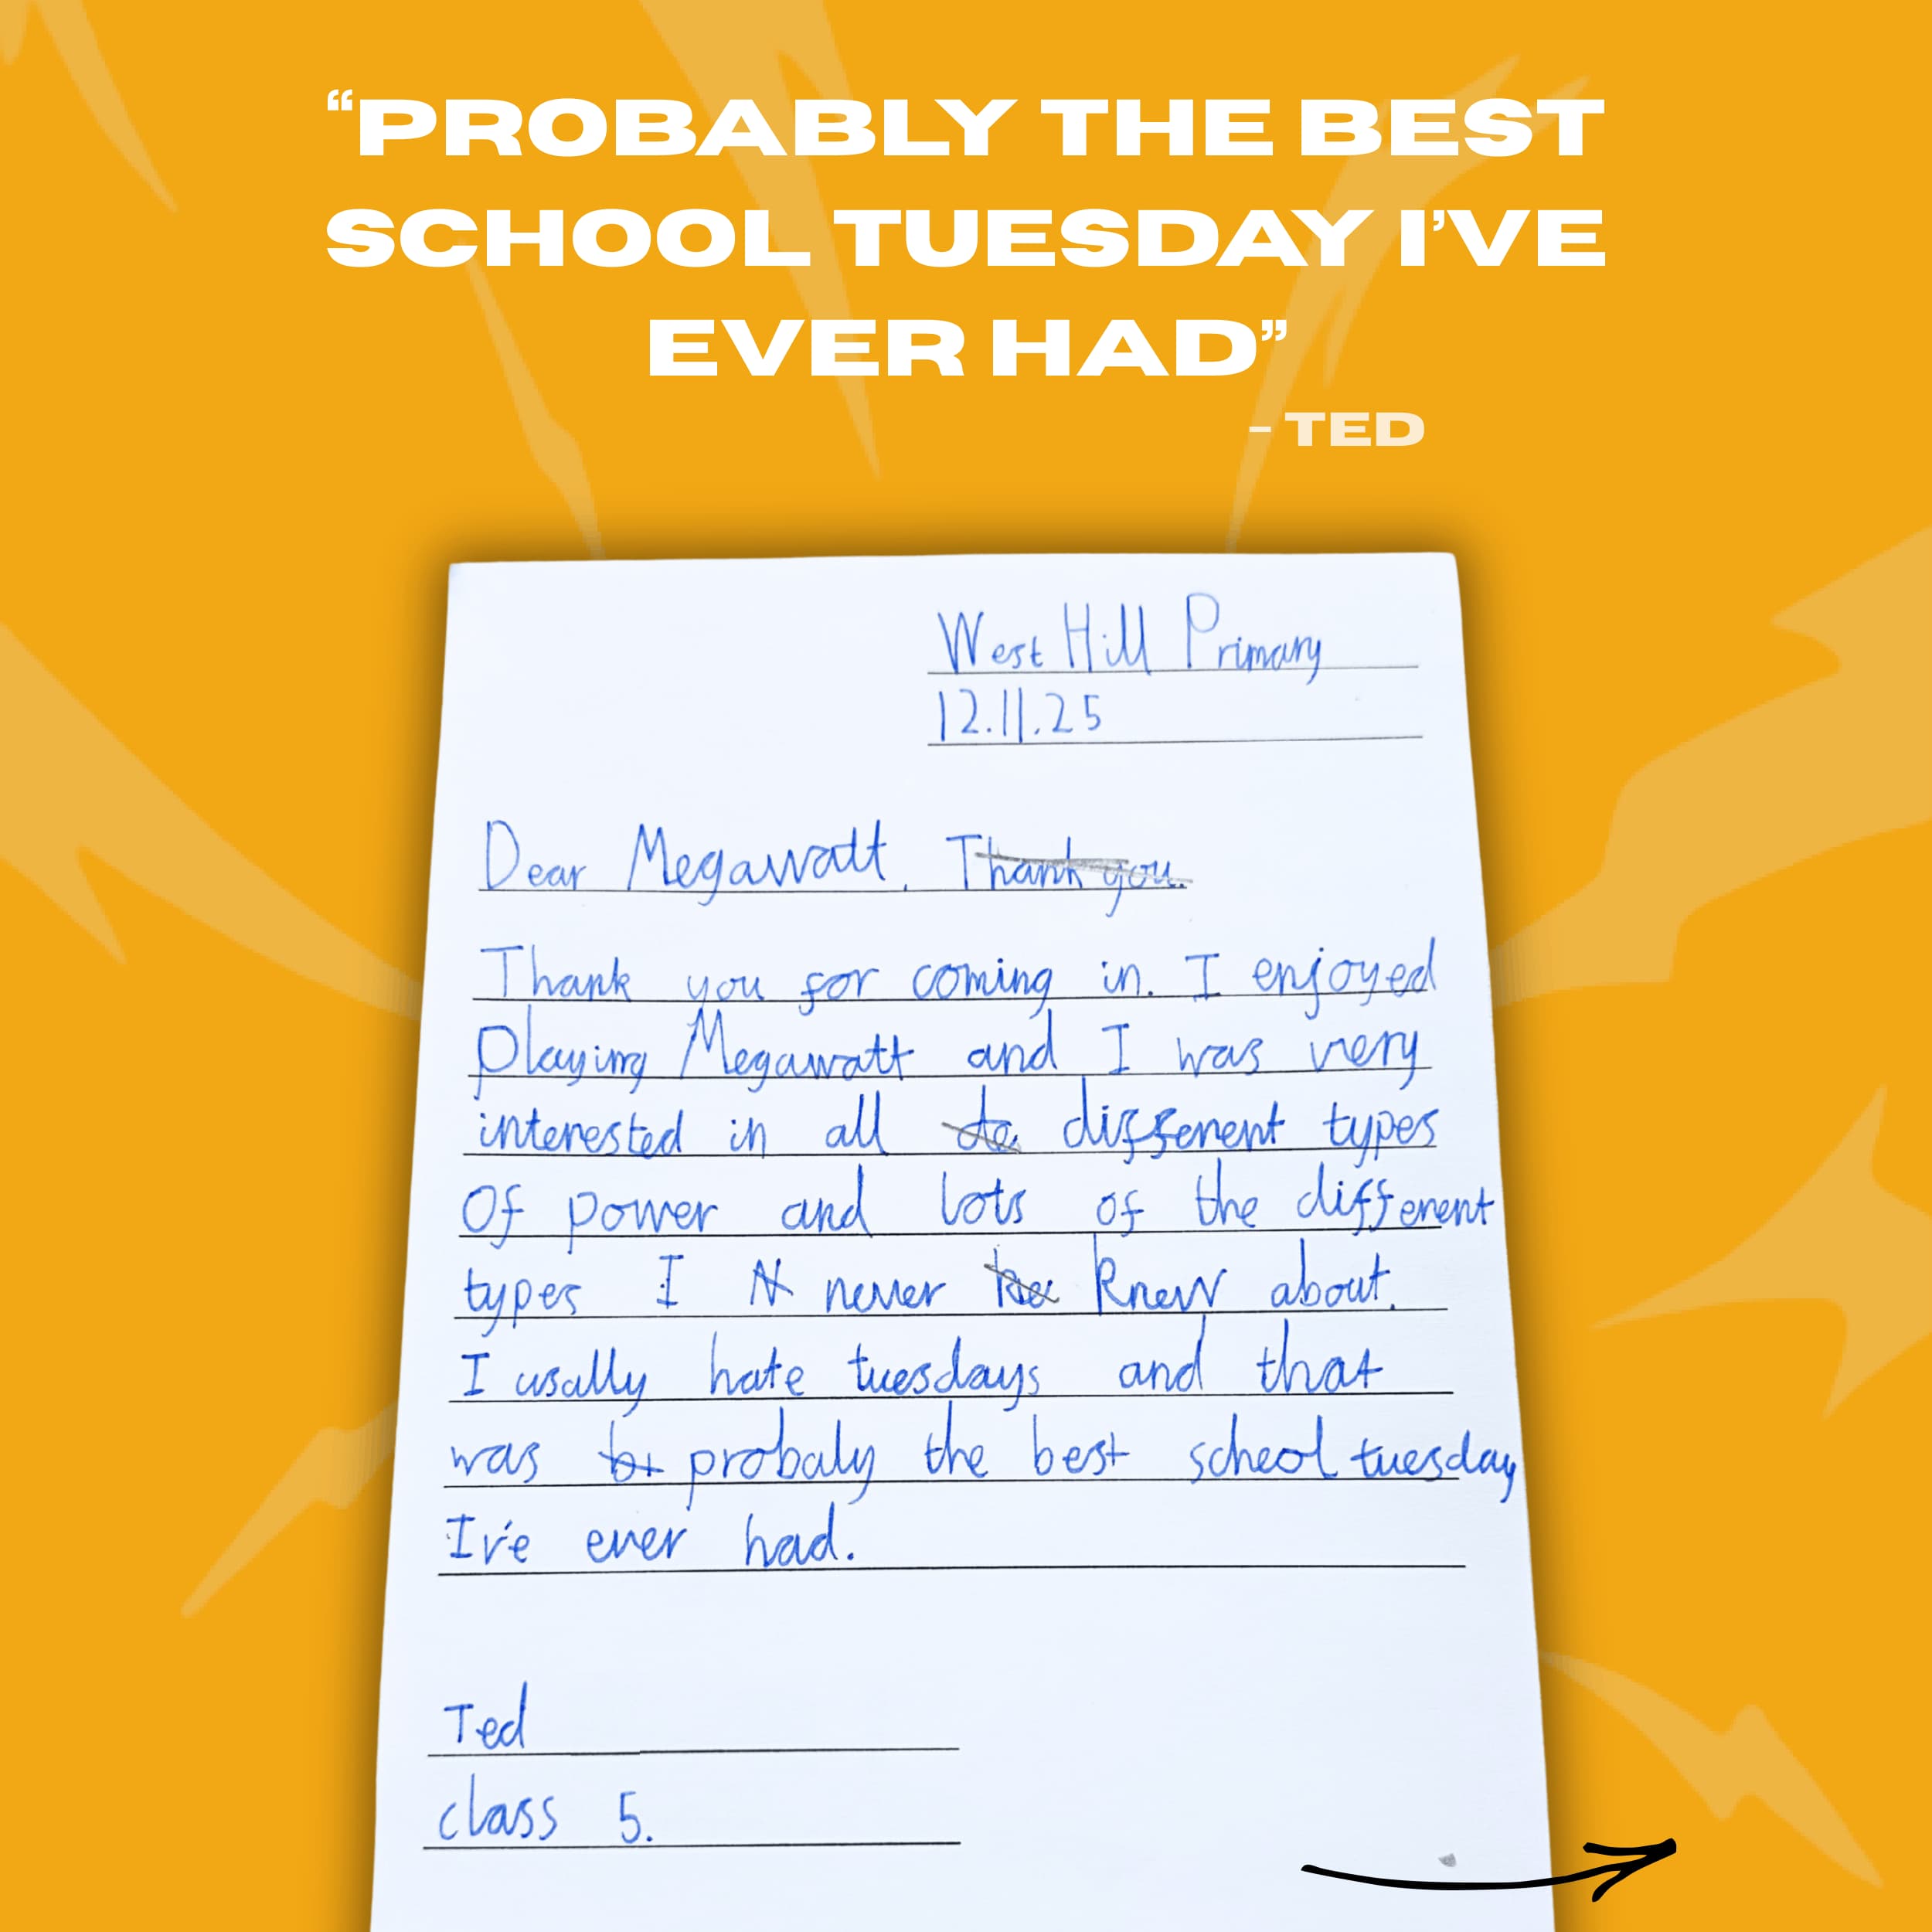 “PROBABLY THE BEST
SCHOOL TUESDAY I’VE
EVER HAD”
- TED
West Hill Primary
12.11.25
Dear Megawatt. Thank you.
Thank you for coming in. I enjoyed
Playing Megawatt and I was very
interested in all de different types
Of power and lots of the different
types I N never ke Knew about.
I usally hate tuesdays and that
was bt probaly the best school tuesday
I've ever had.
Ted
class 5.